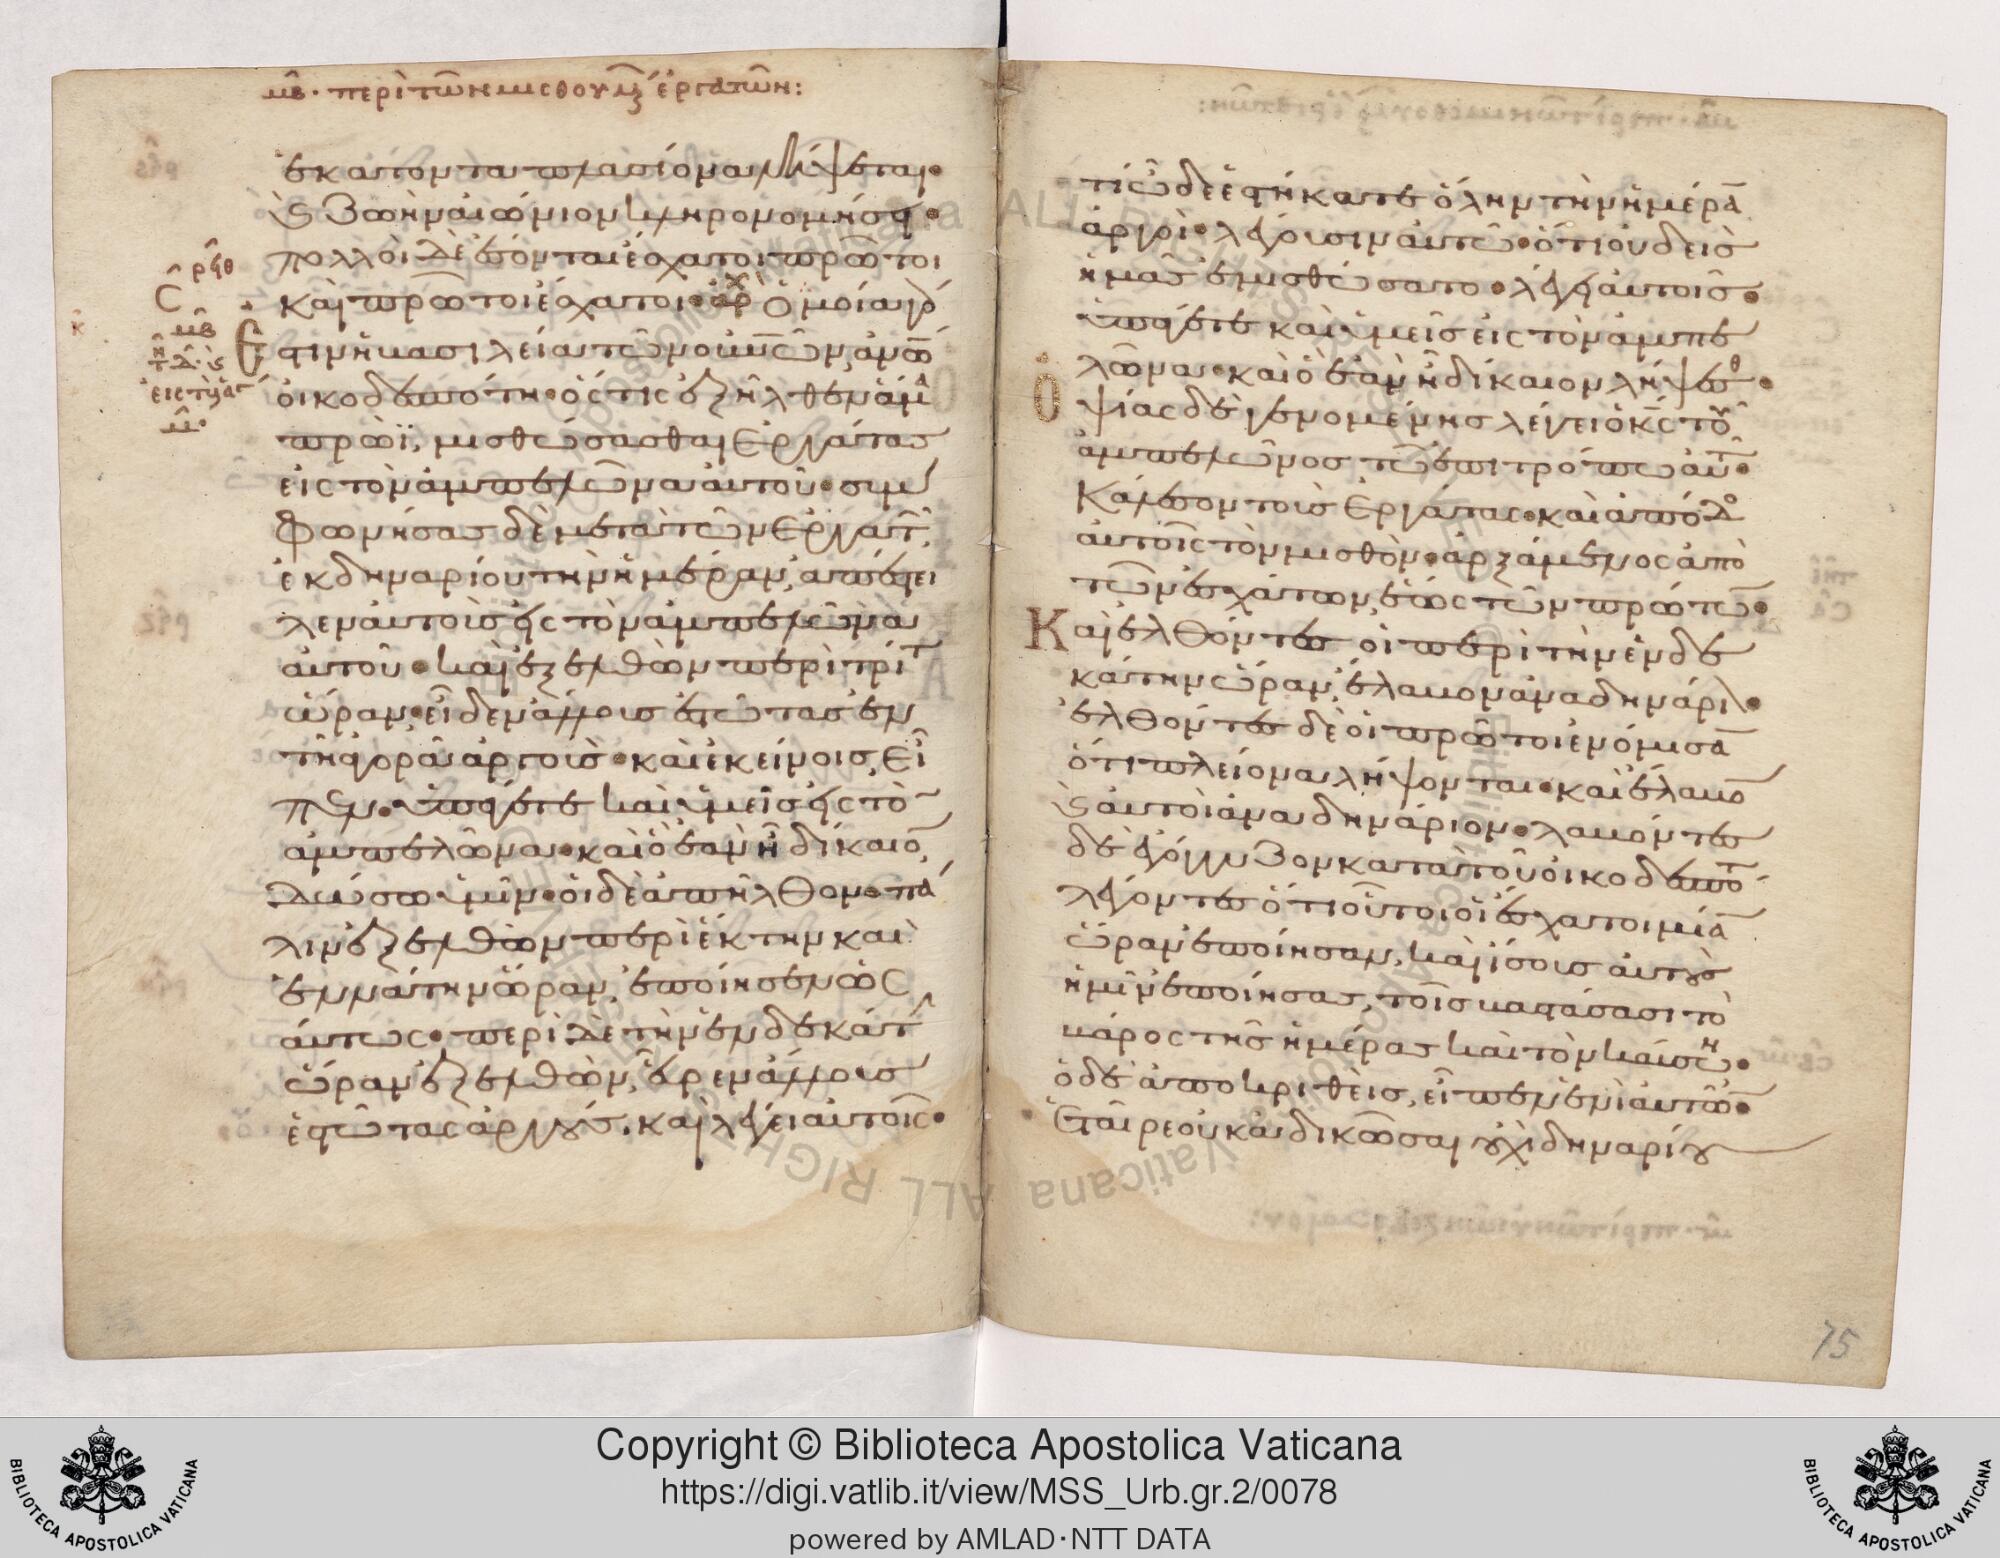 μβ· περὶ τῶν μισθουμ(έν)(ων) ἐργατῶν:
ἑκατονταπλασίονα λήψεται·
κ(αὶ) ζωὴν αἰώνιον κληρονομήσει·
πολλοὶ δὲ ἔσονται ἔσχατοι πρῶτοι
καὶ πρῶτοι ἔσχατοι· ἀρχ ὁμοία γάρ
ρϟθ
C
μβ
ἐστιν ἡ βασιλεία τῶν οὐ(ρα)νῶν, ἀν(θρώπ)ω
οἰκοδεσπότη· ὅστις ἐξῆλθεν ἅμα
πρωΐ, μισθώσασθαι ἐργάτας
εἰς τὸν ἀμπελῶνα αὐτοῦ· συμ
φωνήσας δὲ μετὰ τῶν ἐργατ(ῶν)
ἐκ δηναρίου τὴν ἡμέραν, ἀπέστει
λεν αὐτοὺς εἰς τὸν ἀμπελῶνα
αὐτοῦ· καὶ ἐξελθὼν περὶ τρίτ(ην)
ὥραν, εἶδεν ἄλλους ἑστῶτας ἐν
τῇ ἀγορᾷ ἀργοὺς· κἀκείνοις, εἶ
πεν· ὑπάγετε καὶ ὑμεῖς εἰς τὸ(ν)
ἀμπελῶνα· καὶ ὃ ἐὰν ἦ δίκαιο(ν),
δώσω ὑμῖν· οἱ δὲ ἀπῆλθον· πά
λιν ἐξελθὼν περὶ ἕκτην καὶ
ἐννάτην ὥραν, ἐποίησεν ὡς
αύτως· περὶ δὲ τὴν ἑνδεκάτ(ην)
ὥραν ἐξελθὼν, εὗρεν ἄλλους
ἑστῶτας ἀργούς, καὶ λέγει αὐτοῖς·
τί ὧδε ἑστήκατε ὅλην τὴν ἡμέρα(ν)
ἀργοὶ· λέγουσιν αὐτῶ· ὅτι οὐδεὶς
ἡμᾶς ἐμισθώσατο· λέγει αὐτοῖς·
ὑπάγετε καὶ ὑμεῖς εἰς τὸν ἀμπε
λῶνα· καὶ ὃ ἐὰν ἦ δίκαιον λήψεσθ(ε)·
Ὀψίας δὲ γενομένης λέγει ὁ κ(ύριο)ς τοῦ
ἀμπελῶνος τῶ ἐπιτρόπω αὐτ(οῦ)·
Κάλεσον τοὺς ἐργάτας· καὶ ἀπόδο(ς)
αὐτοῖς τὸν μισθὸν· ἀρξάμενος ἀπὸ
τῶν ἐσχάτων, ἕως τῶν πρώτω(ν)·
Καὶ ἐλθόντες οἱ περὶ τὴν ἑνδε
κάτην ὥραν, ἔλαβον ἀνὰ δηνάρι(ον)·
ἐλθόντες δὲ οἱ πρῶτοι ἐνόμισα(ν)
ὅτι πλείονα λήψονται· καὶ ἔλαβο(ν)
κ(αὶ) αὐτοὶ ἀνὰ δηνάριον· λαβόντες
δὲ ἐγόγγυζον κατὰ τοῦ οἰκοδεσπότ(ου)
λέγοντες ὅτι οὗτοι οἱ ἔσχατοι μία(ν)
ὥραν ἐποίησαν, καὶ ἴσους αὐτοὺς
ἡμῖν ἐποίησας, τοῖς βαστάσασι τὸ
βάρος τῆς ἡμέρας καὶ τὸν καύσων(α)·
ὁ δὲ ἀποκριθεὶς, εἶπεν ἑνὶ αὐτῶ(ν)·
Ἑταῖρε οὐκ ἀδικῶ σε, οὐχὶ δηναρίου
75
Copyright © Biblioteca Apostolica Vaticana
https://digi.vatlib.it/view/MSS_Urb.gr.2/0078
powered by AMLAD·NTT DATA
BIBLIOTECA APOSTOLICA VATICANA
BIBLIOTECA APOSTOLICA VATICANA